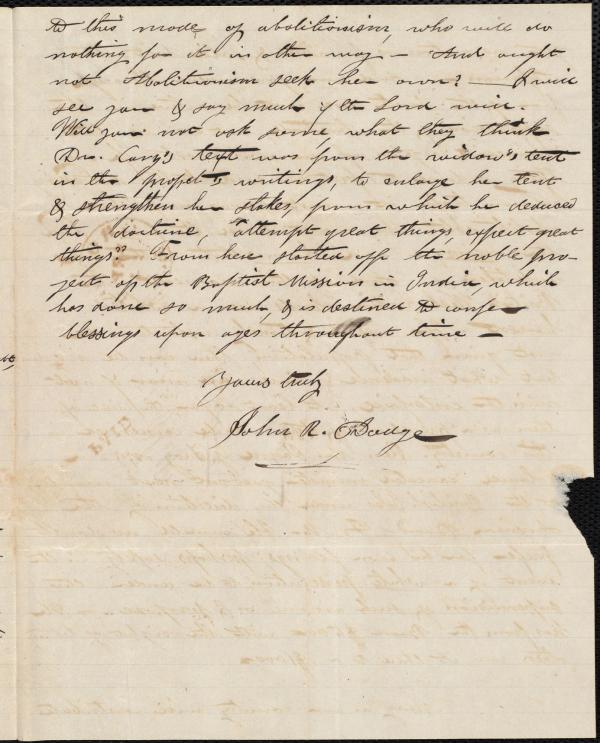 to this mode of abolitionism, who will do
nothing for it in other way — And ought
not Abolitionism seek her own? — I will
see you & say much if the Lord will.
Will you not ask some, what they think
Dr. Cary's text was from the widow's tent
in the prophet's writings, to enlarge her tent
& strengthen her stakes, from which he deduced
the doctrine, "attempt great things, expect great
things?" From here started off the noble pro-
ject of the Baptist Mission in India, which
has done so much, & is destined to confer
blessings upon ages throughout time —
Yours truly
John R. Dodge